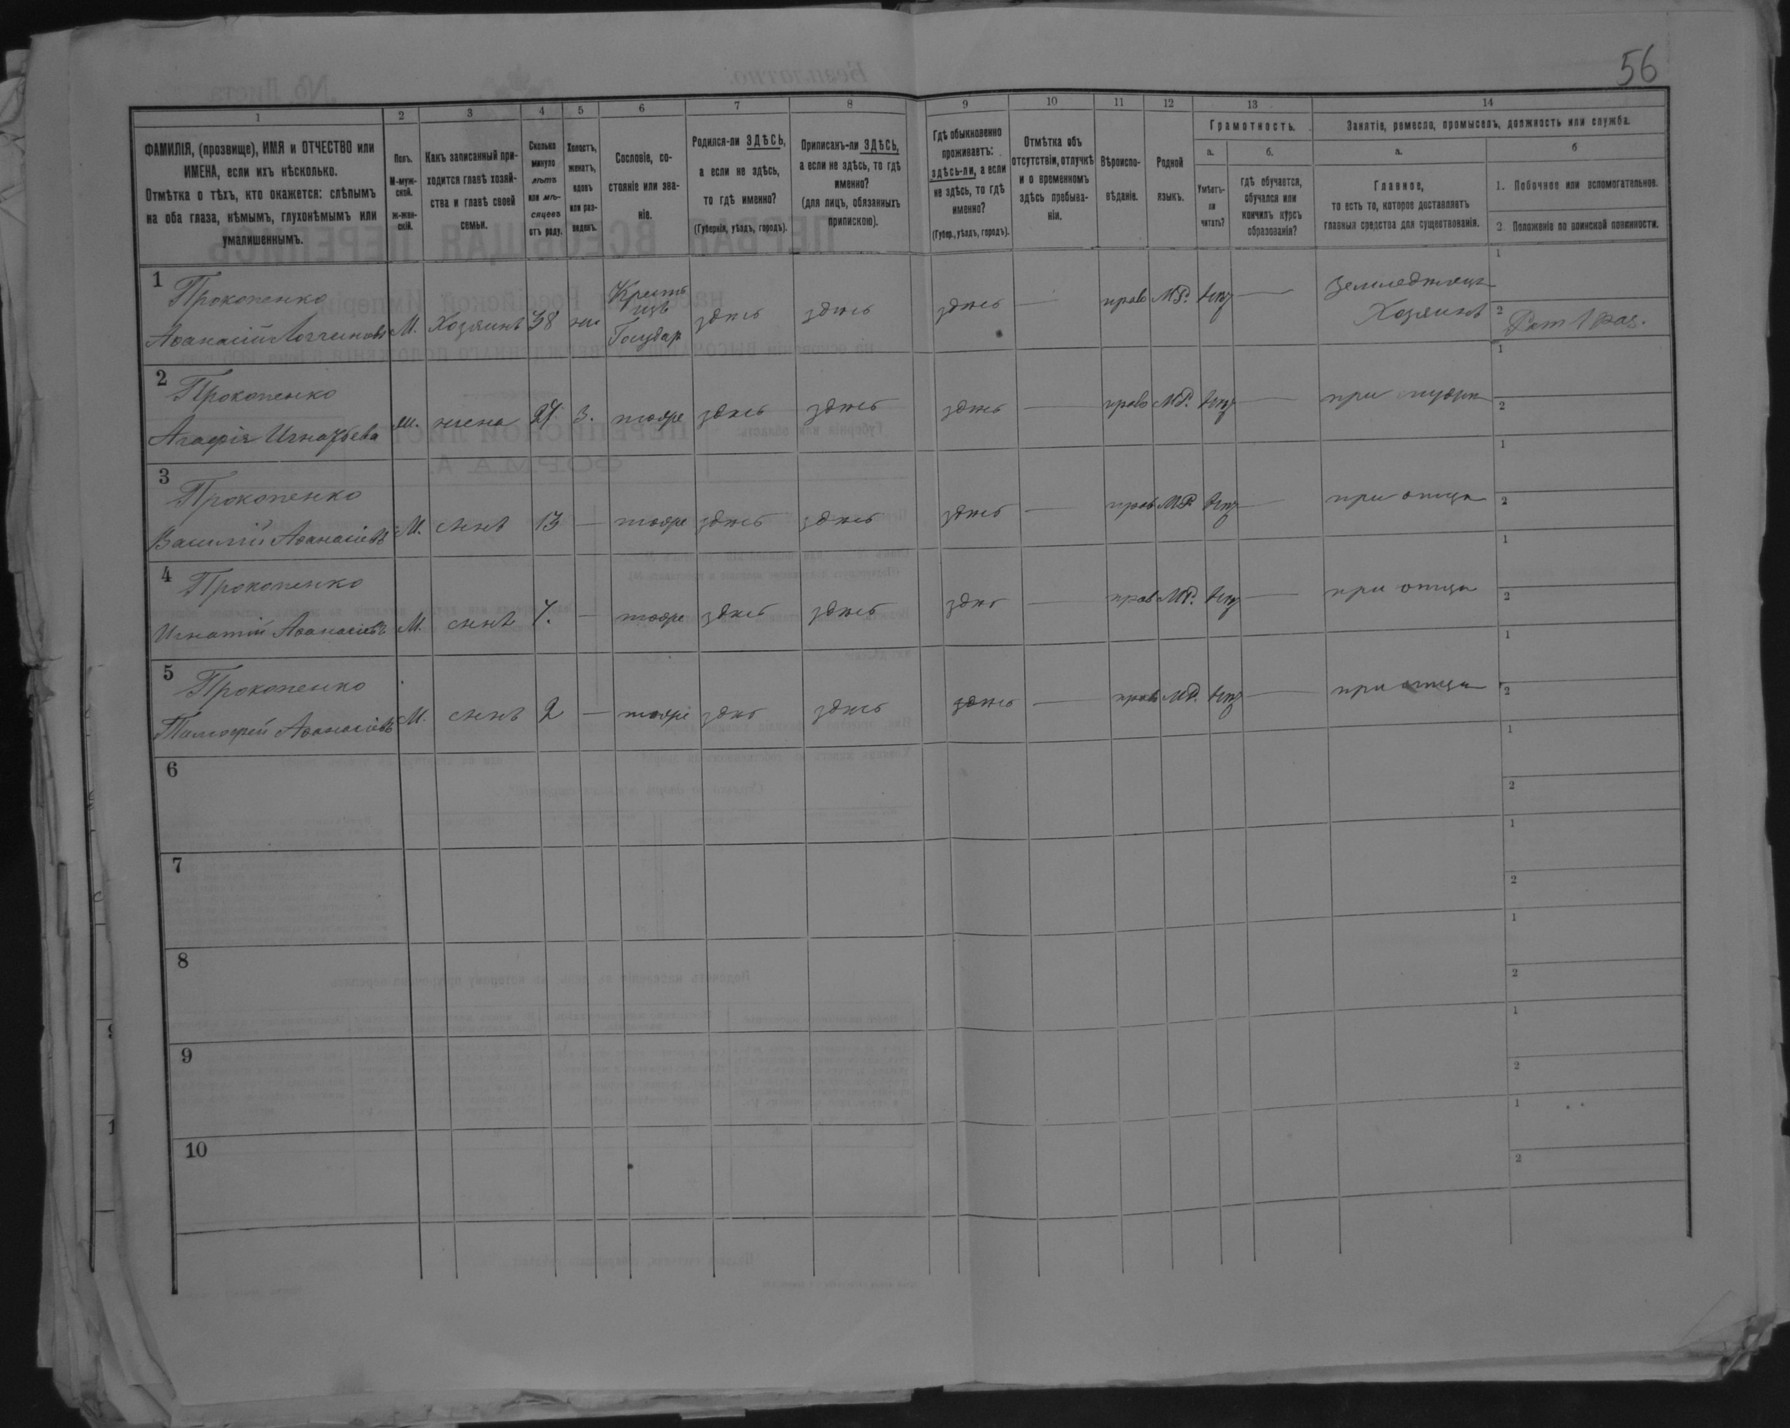 56
1 2 3 4 5 6 7 8 9 10 11 12 13 14
ФАМИЛІЯ, (прозвище), ИМЯ и ОТЧЕСТВО или ИМЕНА, если ихъ нѣсколько.
Отмѣтка о тѣхъ, кто окажется: слѣпымъ на оба глаза, нѣмымъ, глухонѣмымъ или умалишеннымъ.
Полъ. М-мужской. ж-женскій.
Какъ записанный приходится главѣ хозяйства и главѣ своей семьи.
Сколько минуло лѣтъ или мѣсяцевъ отъ роду.
Холостъ, женатъ, вдовъ или разведенъ.
Сословіе, состояніе или званіе.
Родился-ли ЗДѢСЬ, а если не здѣсь, то гдѣ именно?
(Губернія, уѣздъ, городъ).
Приписанъ-ли ЗДѢСЬ, а если не здѣсь, то гдѣ именно?
(для лицъ, обязанныхъ припискою).
Гдѣ обыкновенно проживаетъ: здѣсь-ли, а если не здѣсь, то гдѣ именно?
(Губер., уѣздъ, городъ).
Отмѣтка объ отсутствіи, отлучкѣ и о временномъ здѣсь пребываніи.
Вѣроисповѣданіе.
Родной языкъ.
Грамотность.
а.
Умѣетъ-ли читать?
б.
гдѣ обучается, обучался или кончилъ курсъ образованія?
Занятіе, ремесло, промыселъ, должность или служба.
а.
Главное,
то есть то, которое доставляетъ главныя средства для существованія.
б
1. Побочное или вспомогательное.
2. Положеніе по воинской повинности.
1 Прокопенко
М. Хозяинъ 38 Государ здѣсь здѣсь здѣсь — прав М.Р. нѣт —
Хозяинъ
1
2
2 Прокопенко
Агафія Игнатьева жена 27 З. тоже здѣсь здѣсь здѣсь — прав М.Р. нѣт — при мужѣ
1
2
3 Прокопенко
Василій Аѳанасіевъ М. сынъ 13 — тоже здѣсь здѣсь здѣсь — прав М.Р. нѣт — при отцѣ
1
2
4 Прокопенко
Игнатій Аѳанасіевъ М. сынъ 7. — тоже здѣсь здѣсь здѣсь — прав М.Р. нѣт — при отцѣ
1
2
5 Прокопенко
Аѳанасіевъ М. сынъ 2 — тоже здѣсь здѣсь здѣсь — прав М.Р. нѣт — при отцѣ
1
2
6
1
2
7
1
2
8
1
2
9
1
2
10
1
2